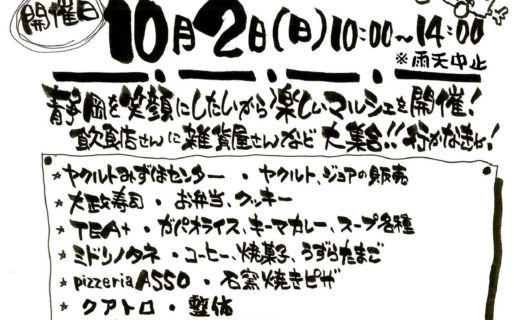 開催日
10月2日(日)10:00〜14:00
※雨天中止
静岡を笑顔にしたいから楽しいマルシェを開催!
飲食店さんに雑貨屋さんなど大集合!!行かなきゃ!
★ヤクルトみずほセンター・ヤクルト、ジョアの販売
★大政寿司・お弁当、クッキー
★TEA+・ガパオライス、キーマカレー、スープ各種
★ミドリノタネ・コーヒー、焼菓子、うずらたまご
★pizzeria ASSO・石窯焼きピザ
★クアトロ・整体